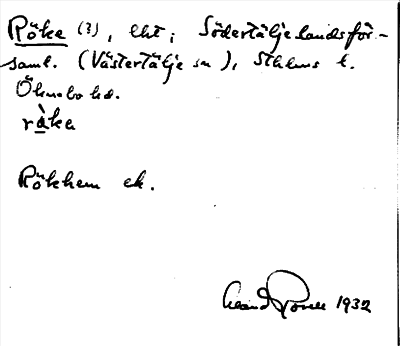 Röke (?), lht, Södertälje landsför-
saml. (Västertälje sn), Sthlms l.
Öknebo hd.
ràka
Rökhem ek.
1932